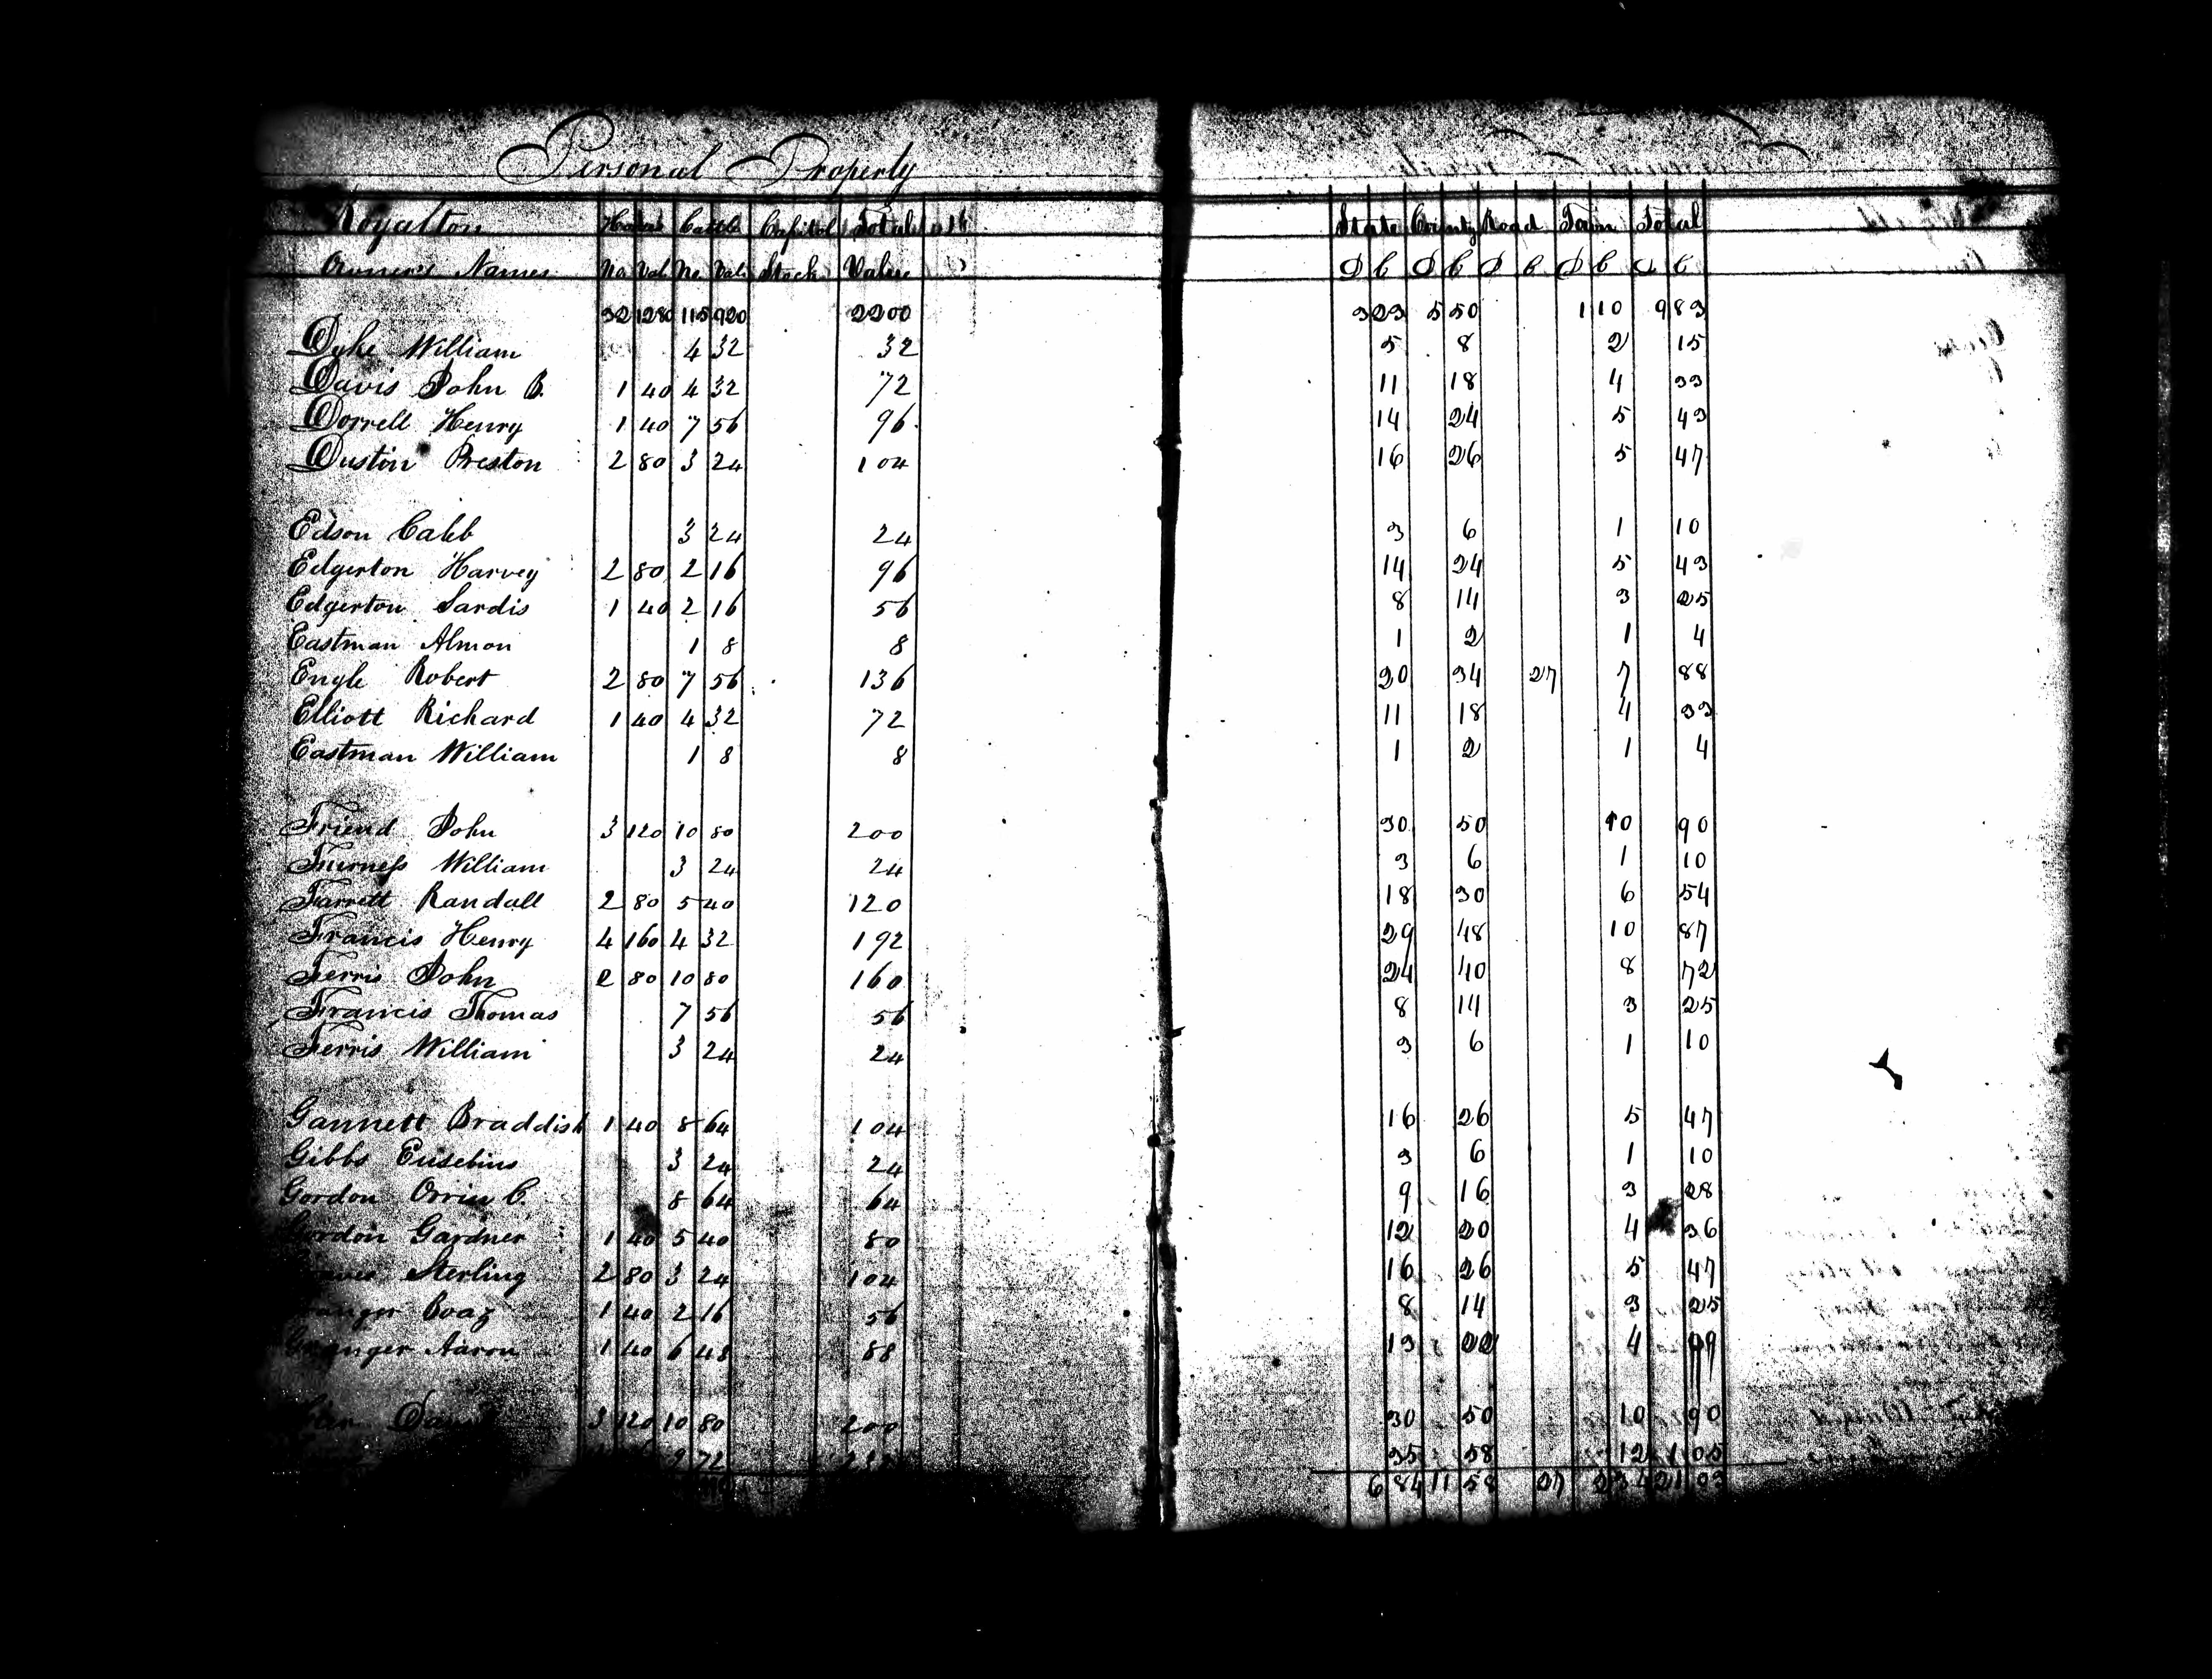 Personal Property
Royalton Horses Cattle Capitol Total State County Road Town Total
Owner's Names No. Val. No. Val. Stock Value D C D C D C D C D C
32 1280 115 920 2200 3 23 5 50 1 10 9 83
Dyke William 4 32 32 5 8 2 15
Davis John B. 1 40 4 32 72 11 18 4 33
Dorrell Henry 1 40 7 56 96 14 24 5 43
Dustin Preston 2 80 3 24 104 16 26 5 47
Edson Caleb 3 24 24 3 6 1 10
Edgerton Harvey 2 80 2 16 96 14 24 5 43
Edgerton Sardis 1 40 2 16 56 8 14 3 25
Eastman Almon 1 8 8 1 2 1 4
Engle Robert 2 80 7 56 136 20 34 27 7 88
Elliott Richard 1 40 4 32 72 11 18 4 33
Eastman William 1 8 8 1 2 1 4
Friend John 3 120 10 80 200 30 50 10 90
Furness William 3 24 24 3 6 1 10
Farrett Randall 2 80 5 40 120 18 30 6 54
Francis Henry 4 160 4 32 192 29 48 10 87
Ferris John 2 80 10 80 160 24 40 8 72
Francis Thomas 7 56 56 8 14 3 25
Ferris William 3 24 24 3 6 1 10
Gannett Braddish 1 40 8 64 104 16 26 5 47
Gibbs Eusebius 3 24 24 3 6 1 10
Gordon Orrin C. 8 64 64 9 16 3 28
Gordon Gardner 1 40 5 40 80 12 20 4 36
Sterling 2 80 3 24 104 16 26 5 47
Granger Boaz 1 40 2 16 56 8 14 3 25
Granger Aaron 1 40 6 48 88 13 22 4 39
3 120 10 80 200 30 50 10 90
9 72 35 58 12 1 05
6 84 11 58 27 2 34 21 03